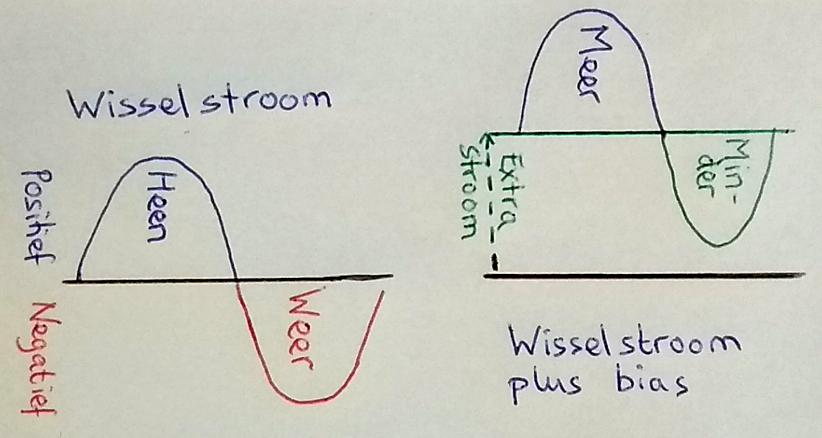 Wisselstroom
Positief
Negatief
Heen
Weer
Meer
Min-
der
Extra
stroom
Wisselstroom
plus bias